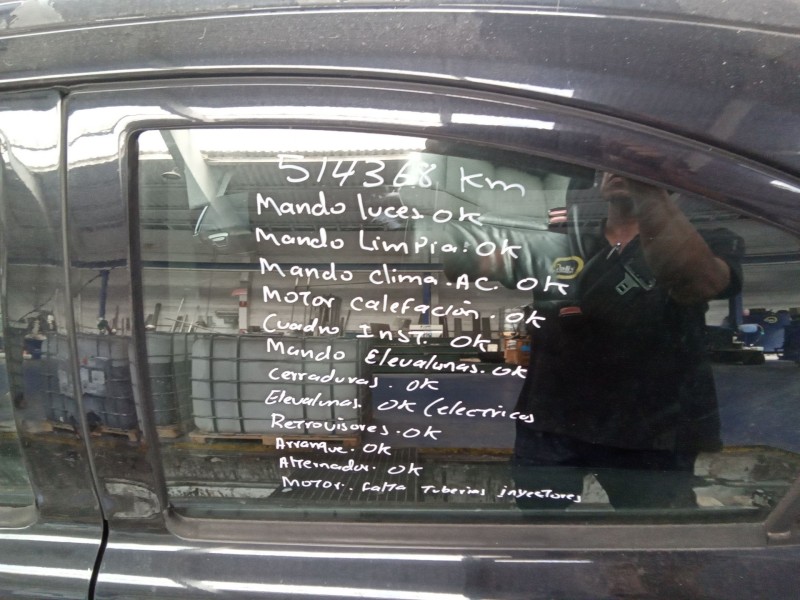 514368 Km
Mando luces OK
Mando Limpia: OK
Mando clima. AC. OK
Motor calefación. OK
Cuadro Inst. OK
Mando Elevalunas. OK
Cerraduras. OK
Elevalunas OK (electricos
Retrovisores. OK
Arranque. OK
Alternador. OK
Motor.. Falta Tuberias inyectores